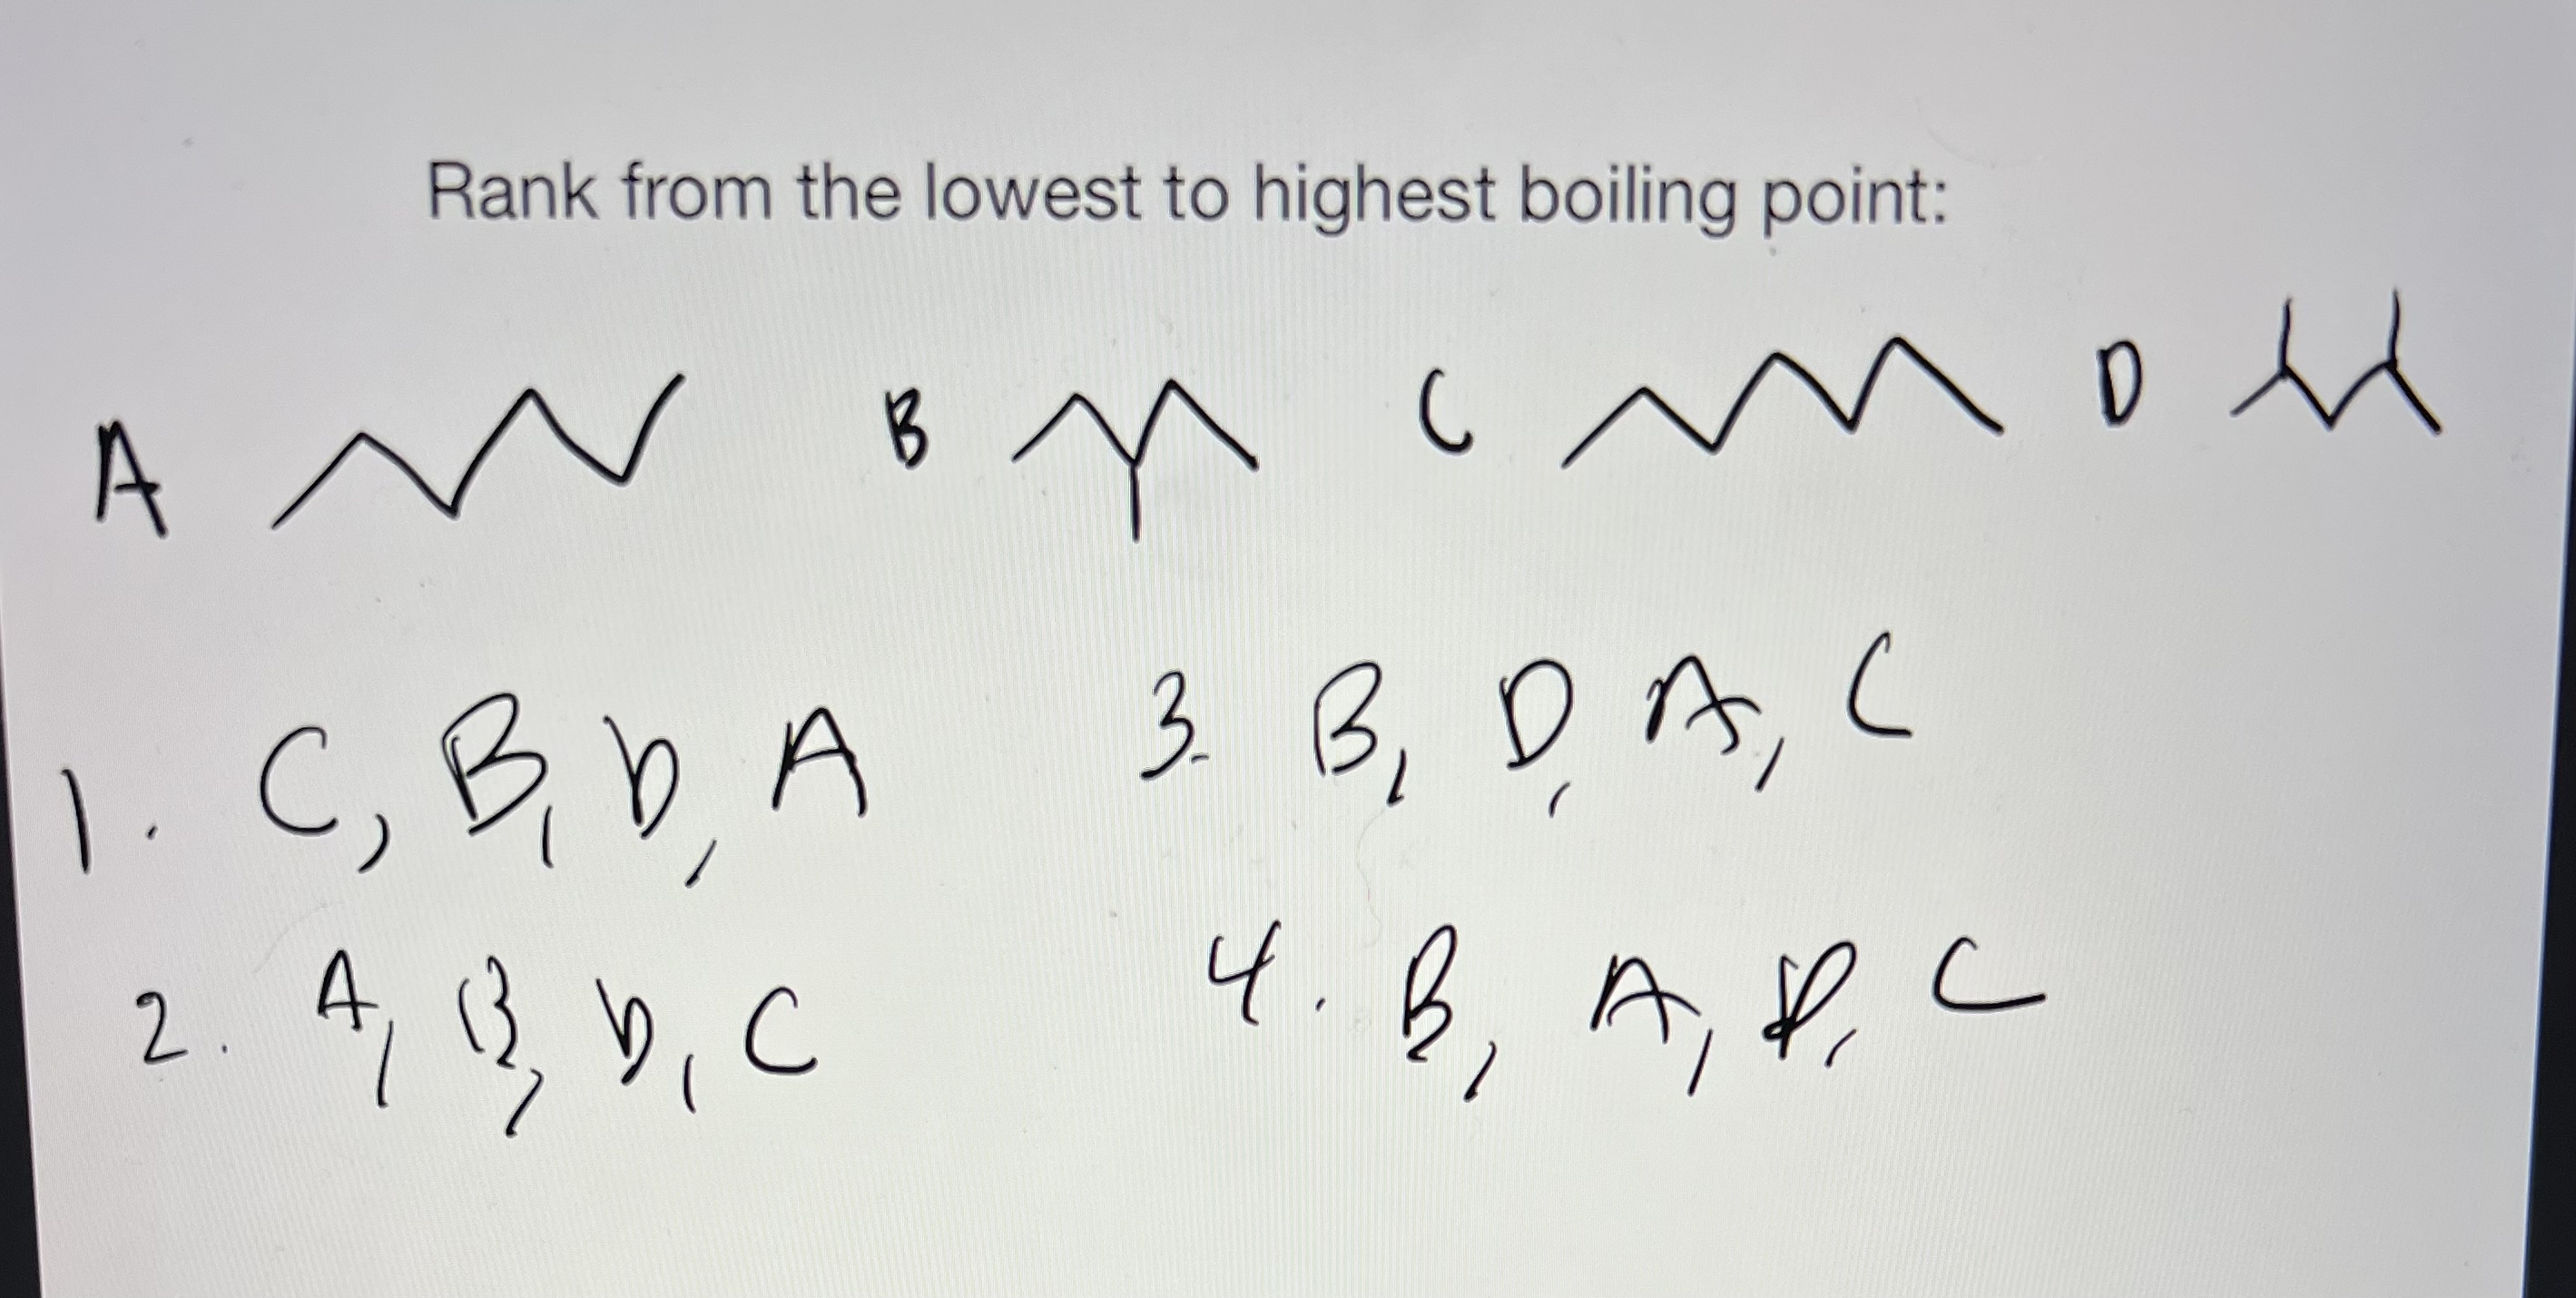 Rank from the lowest to highest boiling point:
A B C D
1. C, B, D, A 3. B, D, A, C
2. A, B, D, C 4. B, A, D, C